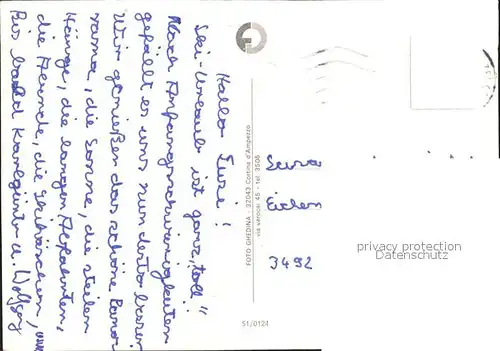 Hallo Susi!
Ski-Urlaub ist ganz „toll"!
Nach Anfangsschwierigkeiten
gefällt es uns wunderbar
Wir genießen das schöne Panora-
rama, die Sonne, die steilen
Hänge, die langen Abfahrten,
die Abende, die
Bis bald Karlgünter u. Wolfgang
FOTO GHEDINA - 32043 Cortina d'Ampezzo
via verocai 45 - tel. 3506
51/0124
3492
privacy protection
Datenschutz